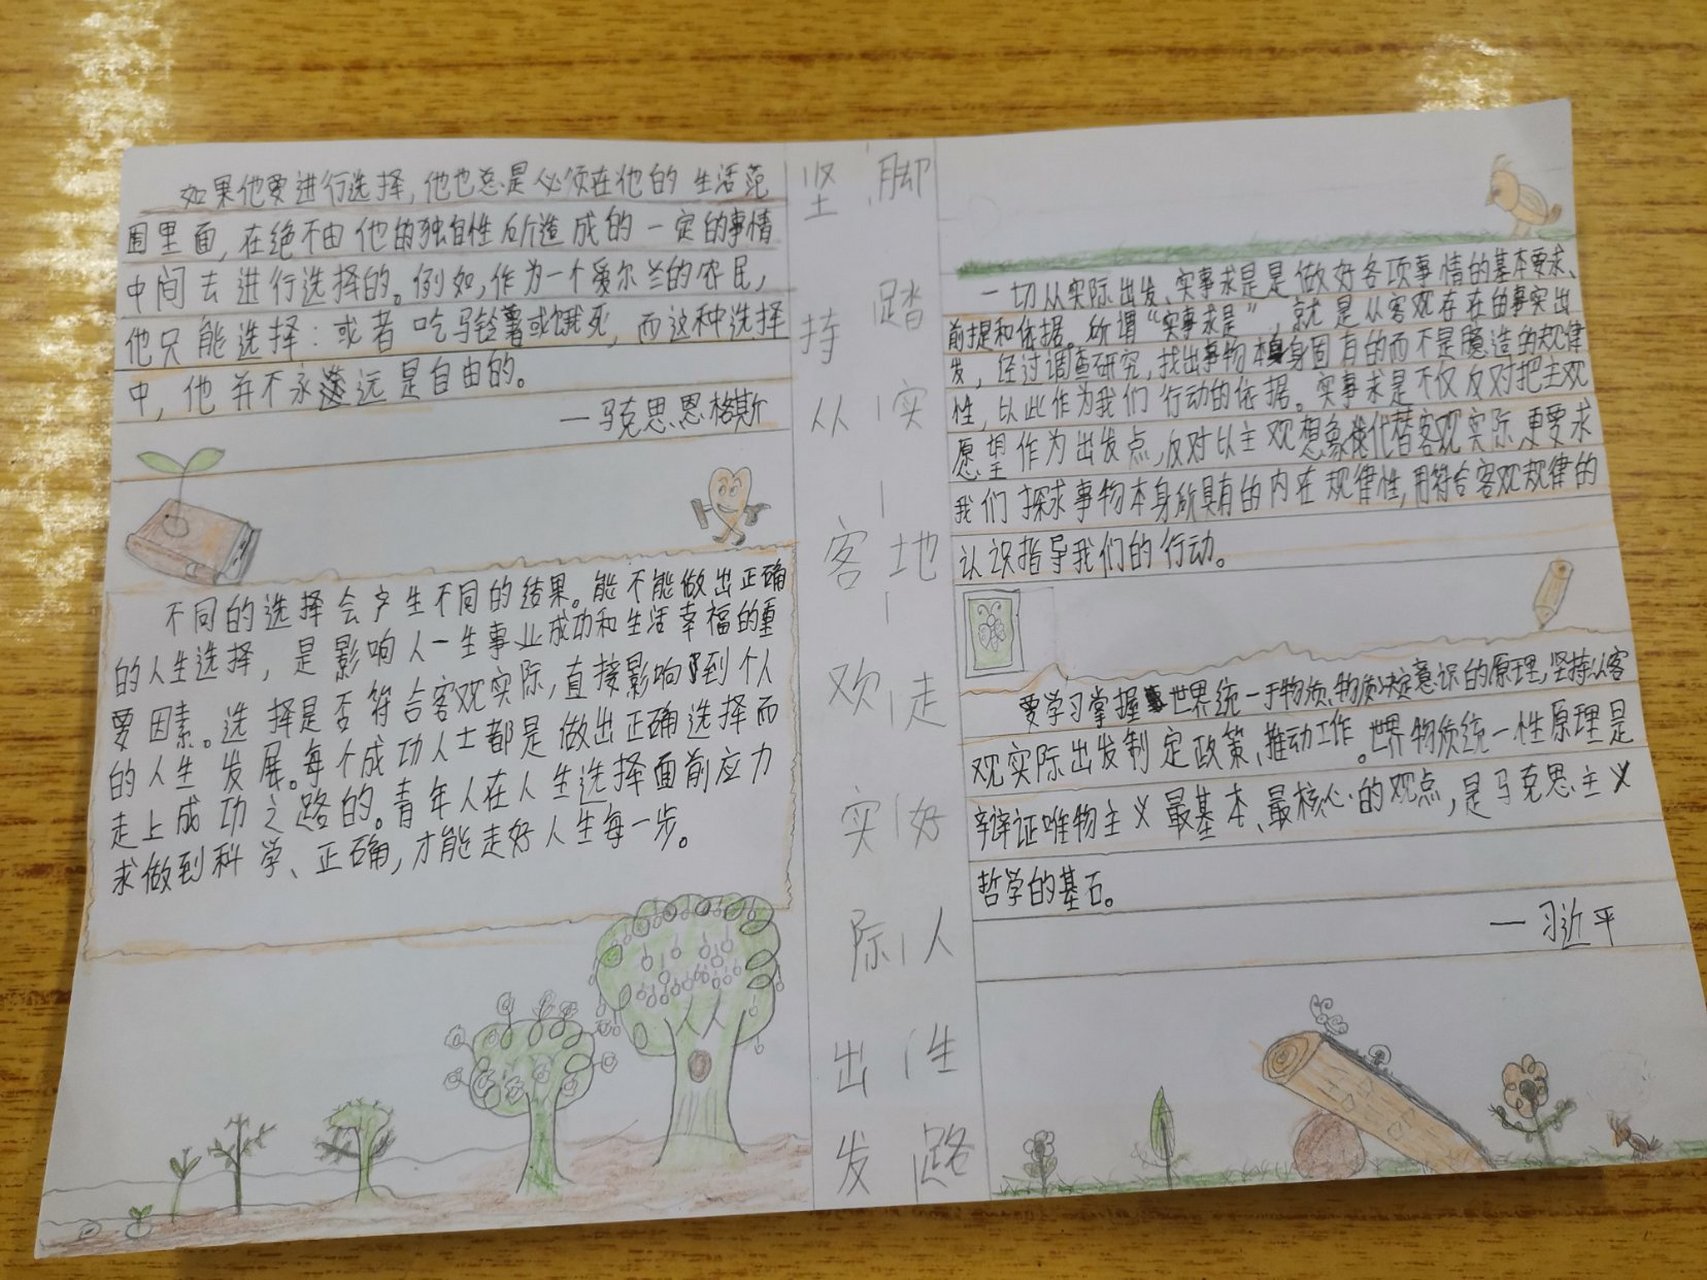 如果他要进行选择，他也总是必须在他的生活范
围里面，在绝不由他的独自性所造成的一定的事情
中间去进行选择的。例如，作为一个爱尔兰的农民，
他只能选择：或者吃马铃薯或饿死，而这种选择
中，他并不永远是自由的。
—马克思恩格斯
不同的选择会产生不同的结果。能不能做出正确
的人生选择，是影响人一生事业成功和生活幸福的重
要因素。选择是否符合客观实际，直接影响到个人
的人生发展。每个成功人士都是做出正确选择而
走上成功之路的。青年人在人生选择面前应力
求做到科学、正确，才能走好人生每一步。
坚持从客观实际出发
脚踏实地走好人生路
一切从实际出发、实事求是是做好各项事情的基本要求、
前提和依据。所谓“实事求是”，就是从客观存在的事实出
发，经过调查研究，找出事物本身固有的而不是臆造的规律
性，以此作为我们行动的依据。实事求是不仅反对把主观
愿望作为出发点，反对以主观想象代替客观实际，更要求
我们探求事物本身所具有的内在规律性，用符合客观规律的
认识指导我们的行动。
要学习掌握世界统一于物质、物质决定意识的原理，坚持从客
观实际出发制定政策、推动工作。世界物质统一性原理是
辩证唯物主义最基本、最核心的观点，是马克思主义
哲学的基石。
—习近平